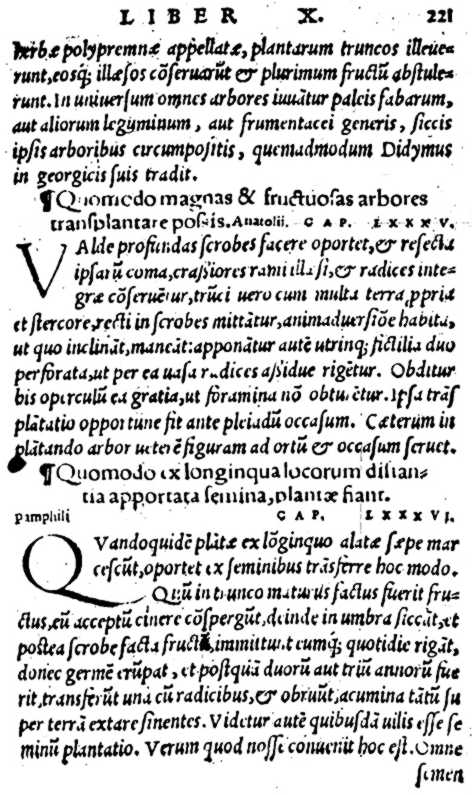 LIBER X. 221
herbæ polypremnæ appellatæ, plantarum truncos illeue=
runt, eosq́; illæsos cõseruarũt & plurimum fructũ abstule=
runt. In uniuersum omnes arbores iuuãtur paleis fabarum,
aut aliorum leguminum, aut frumentacei generis, siccis
ipsis arboribus circumpositis, quemadmodum Didymus
in georgicis suis tradit.
¶Quomodo magnas & fructuosas arbores
transplantare possis. Anatolii. CAP. LXXXV.
VAlde profundas scrobes facere oportet, & resecta
ipsarũ coma, crassiores rami illæsi, & radices inte=
græ cõseruẽtur, trũci uero cum multa terra, ꝓpria
et stercore, recti in scrobes mittãtur, animaduersiõe habita,
ut quo inclinãt, maneãt: apponãtur autẽ utrinq; fictilia duo
perforata, ut per ea uasa radices assidue rigẽtur. Obditur
bis operculũ ea gratia, ut foramina nõ obturẽtur. Ipsa trãs
plãtatio opportune fit ante pleiadũ occasum. Cæterum in
plãtando arbor ueterẽ figuram ad ortũ & occasum seruet.
¶Quomodo ex longinqua locorum distan=
tia apportata semina, plantæ fiant.
Pamphili CAP. LXXXVI.
QVandoquidẽ plãtæ ex lõginquo alatæ sæpe mar
cescũt, oportet ex seminibus trãsferre hoc modo.
Quũ in trunco maturus factus fuerit fru=
ctus, eũ acceptũ cinere cõspergũt, deinde in umbra siccãt, et
postea scrobe facta fructũ immittunt eumq́; quotidie rigãt,
donec germẽ erũpat, et postquã duorũ aut triũ annorũ fue
rit, transferũt una cũ radicibus, & obruũt, acumina tãtũ su
per terrã extare sinentes. Videtur autẽ quibusdã uilis esse se
minũ plantatio. Verum quod nosse conuenit hoc est. Omne
semen